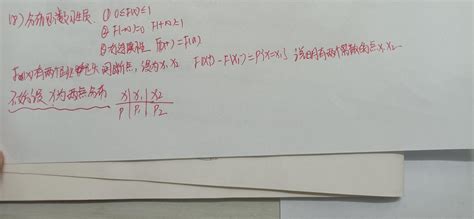 (8) 分布函数的性质 ① 0≤F(x)≤1
② F(-∞)=0 F(+∞)=1
③ 右连续性 F(x⁺)=F(x)
F(x)有两个 间断点,设为x₁,x₂ F(x₁)-F(x₁⁻)=P{X=x₁} 说明有两个 点x₁,x₂
不妨设 X为两点分布 X x₁ x₂
P P₁ P₂